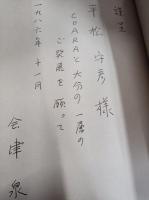 謹呈
平松 守彦 様
COARAと大分の一層の
ご発展を願って
一九八六年 十一月
会津 泉